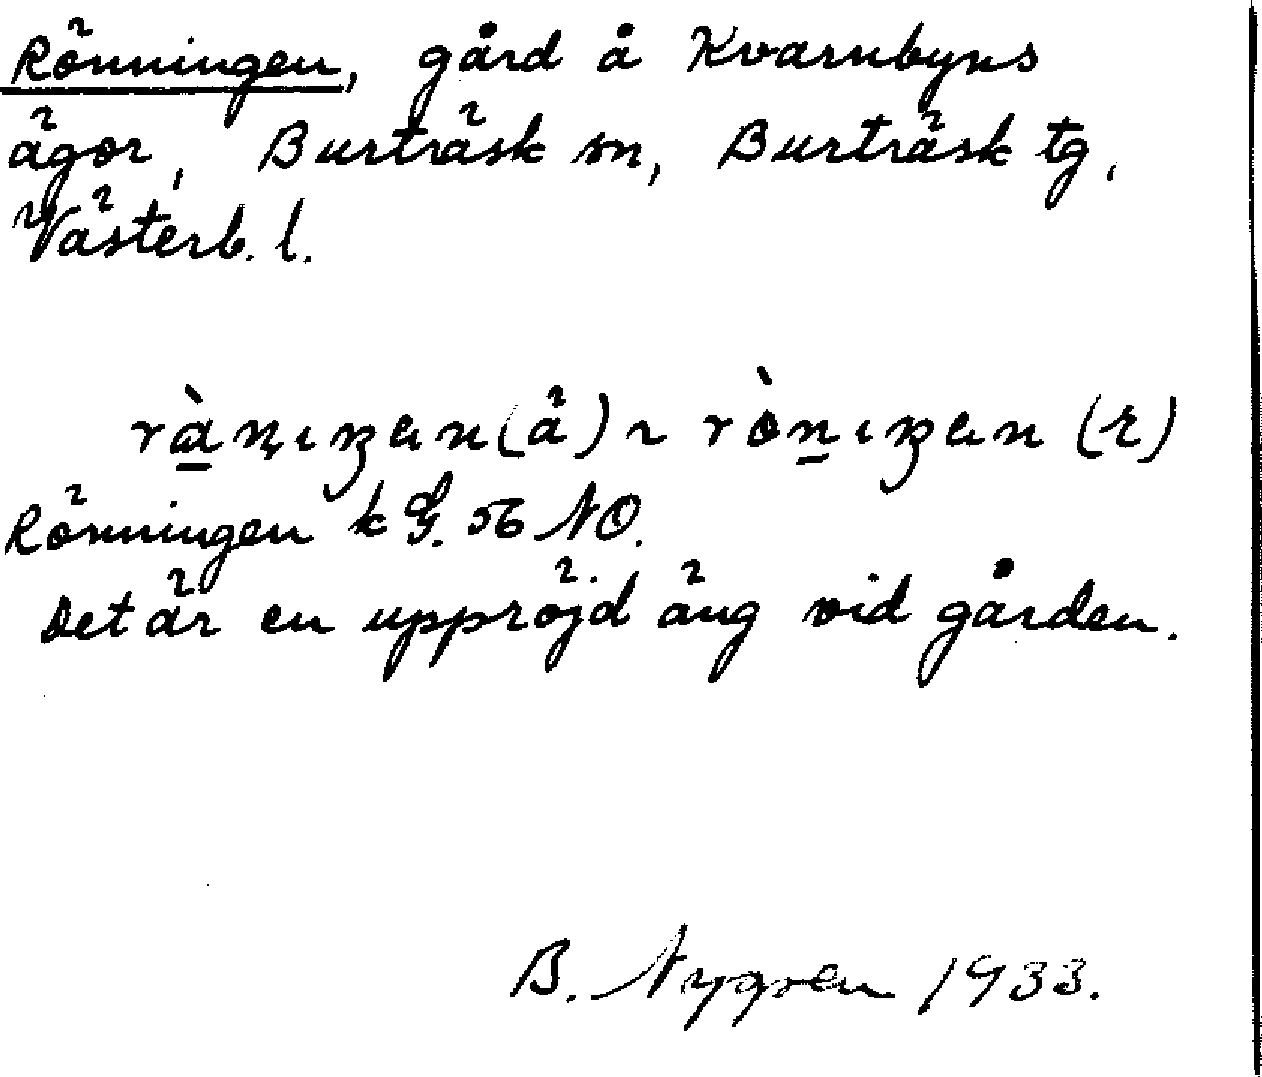 Rönningen, gård å Kvarnbyns
ägor, Burträsk sn, Burträsk tg,
Västerb. l.
(ä) ~ (r)
Rönningen k G. 56 NO.
Det är en uppröjd äng vid gården.
B. Nygren 1933.